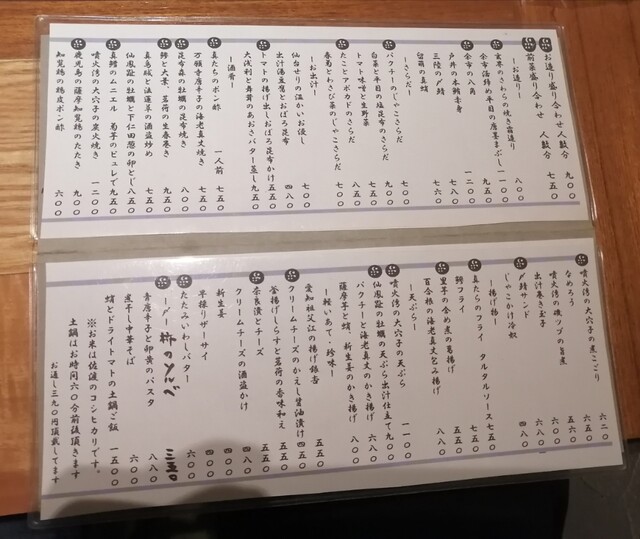 お造り盛り合わせ 人数分 九〇〇
前菜盛り合わせ 人数分 七五〇
ーお造りー
玄界のさわらの焼き霜造り 八〇〇
余市海鮮め平目の唐墨まぶし 一一〇〇
余市の八角 九五〇
戸井の本鮪赤身 一二〇〇
三陸の〆鯖 七八〇
留萌の真蛸 七六〇
ーさらだー
パクチーのじゃこさらだ 七〇〇
白菜と平目の塩昆布のさらだ 九五〇
トマト味噌と生野菜 八五〇
たことアボカドのさらだ 七五〇
春菊とわさび菜のじゃこさらだ 七〇〇
ーお出汁ー
仙台せりの温かいお浸し 七〇〇
出汁湯豆腐とおぼろ昆布 四八〇
トマトの揚げ出しおぼろ昆布かけ 五五〇
大浅利と舞茸のあおさバター蒸し 九五〇
ー酒肴ー
真たちのポン酢 一人前 七五〇
万願寺唐辛子の海老真丈焼き 七五〇
昆布森の牡蠣の昆布焼き 八〇〇
鰤と大葉、茗荷の生春巻き 九五〇
真烏賊と法蓮草の酒盗炒め 七五〇
仙鳳趾の牡蠣と下仁田葱の卵とじ 八五〇
真鱈のムニエル 菊芋のピュレで 九五〇
噴火湾の大穴子の炭火焼き 一二〇〇
鹿児島の薩摩知覧鶏のたたき 九〇〇
知覧鶏の鶏皮ポン酢 六〇〇
噴火湾の大穴子の煮こごり 六二〇
なめろう 六五〇
噴火湾の磯ツブの旨煮 五六〇
出汁巻き玉子 六五〇
じゃこかけ冷奴 四八〇
〆鯖サンド
ー揚げ物ー
真たらのフライ タルタルソース 七五〇
鰤フライ 七五〇
里芋の含め煮の葛揚げ 五五〇
百合根の海老真丈包み揚げ 八〇〇
ー天ぷらー
噴火湾の大穴子の天ぷら 一一〇〇
仙鳳趾の牡蠣の天ぷら出汁仕立て 九〇〇
パクチーと海老真丈のかき揚げ 六八〇
薩摩芋と蛸、新生姜のかき揚げ 八〇〇
ー軽いあて・珍味ー
愛知祖父江の揚げ銀杏 五五〇
クリームチーズのかえし醤油漬け 四五〇
釜揚げしらすと茗荷の香味和え 五五〇
奈良漬とチーズ 五五〇
クリームチーズの酒盗かけ 四八〇
新生姜 四〇〇
半棒りザーサイ 四〇〇
たたみいわしバター 六〇〇
三五〇
青唐辛子と卵黄のパスタ 八八〇
煮干し中華そば 六〇〇
蛸とドライトマトの土鍋ご飯 一五〇〇
※お米は佐渡のコシヒカリです。
土鍋はお時間六〇分前後頂きます
お通し三九〇円頂戴してます